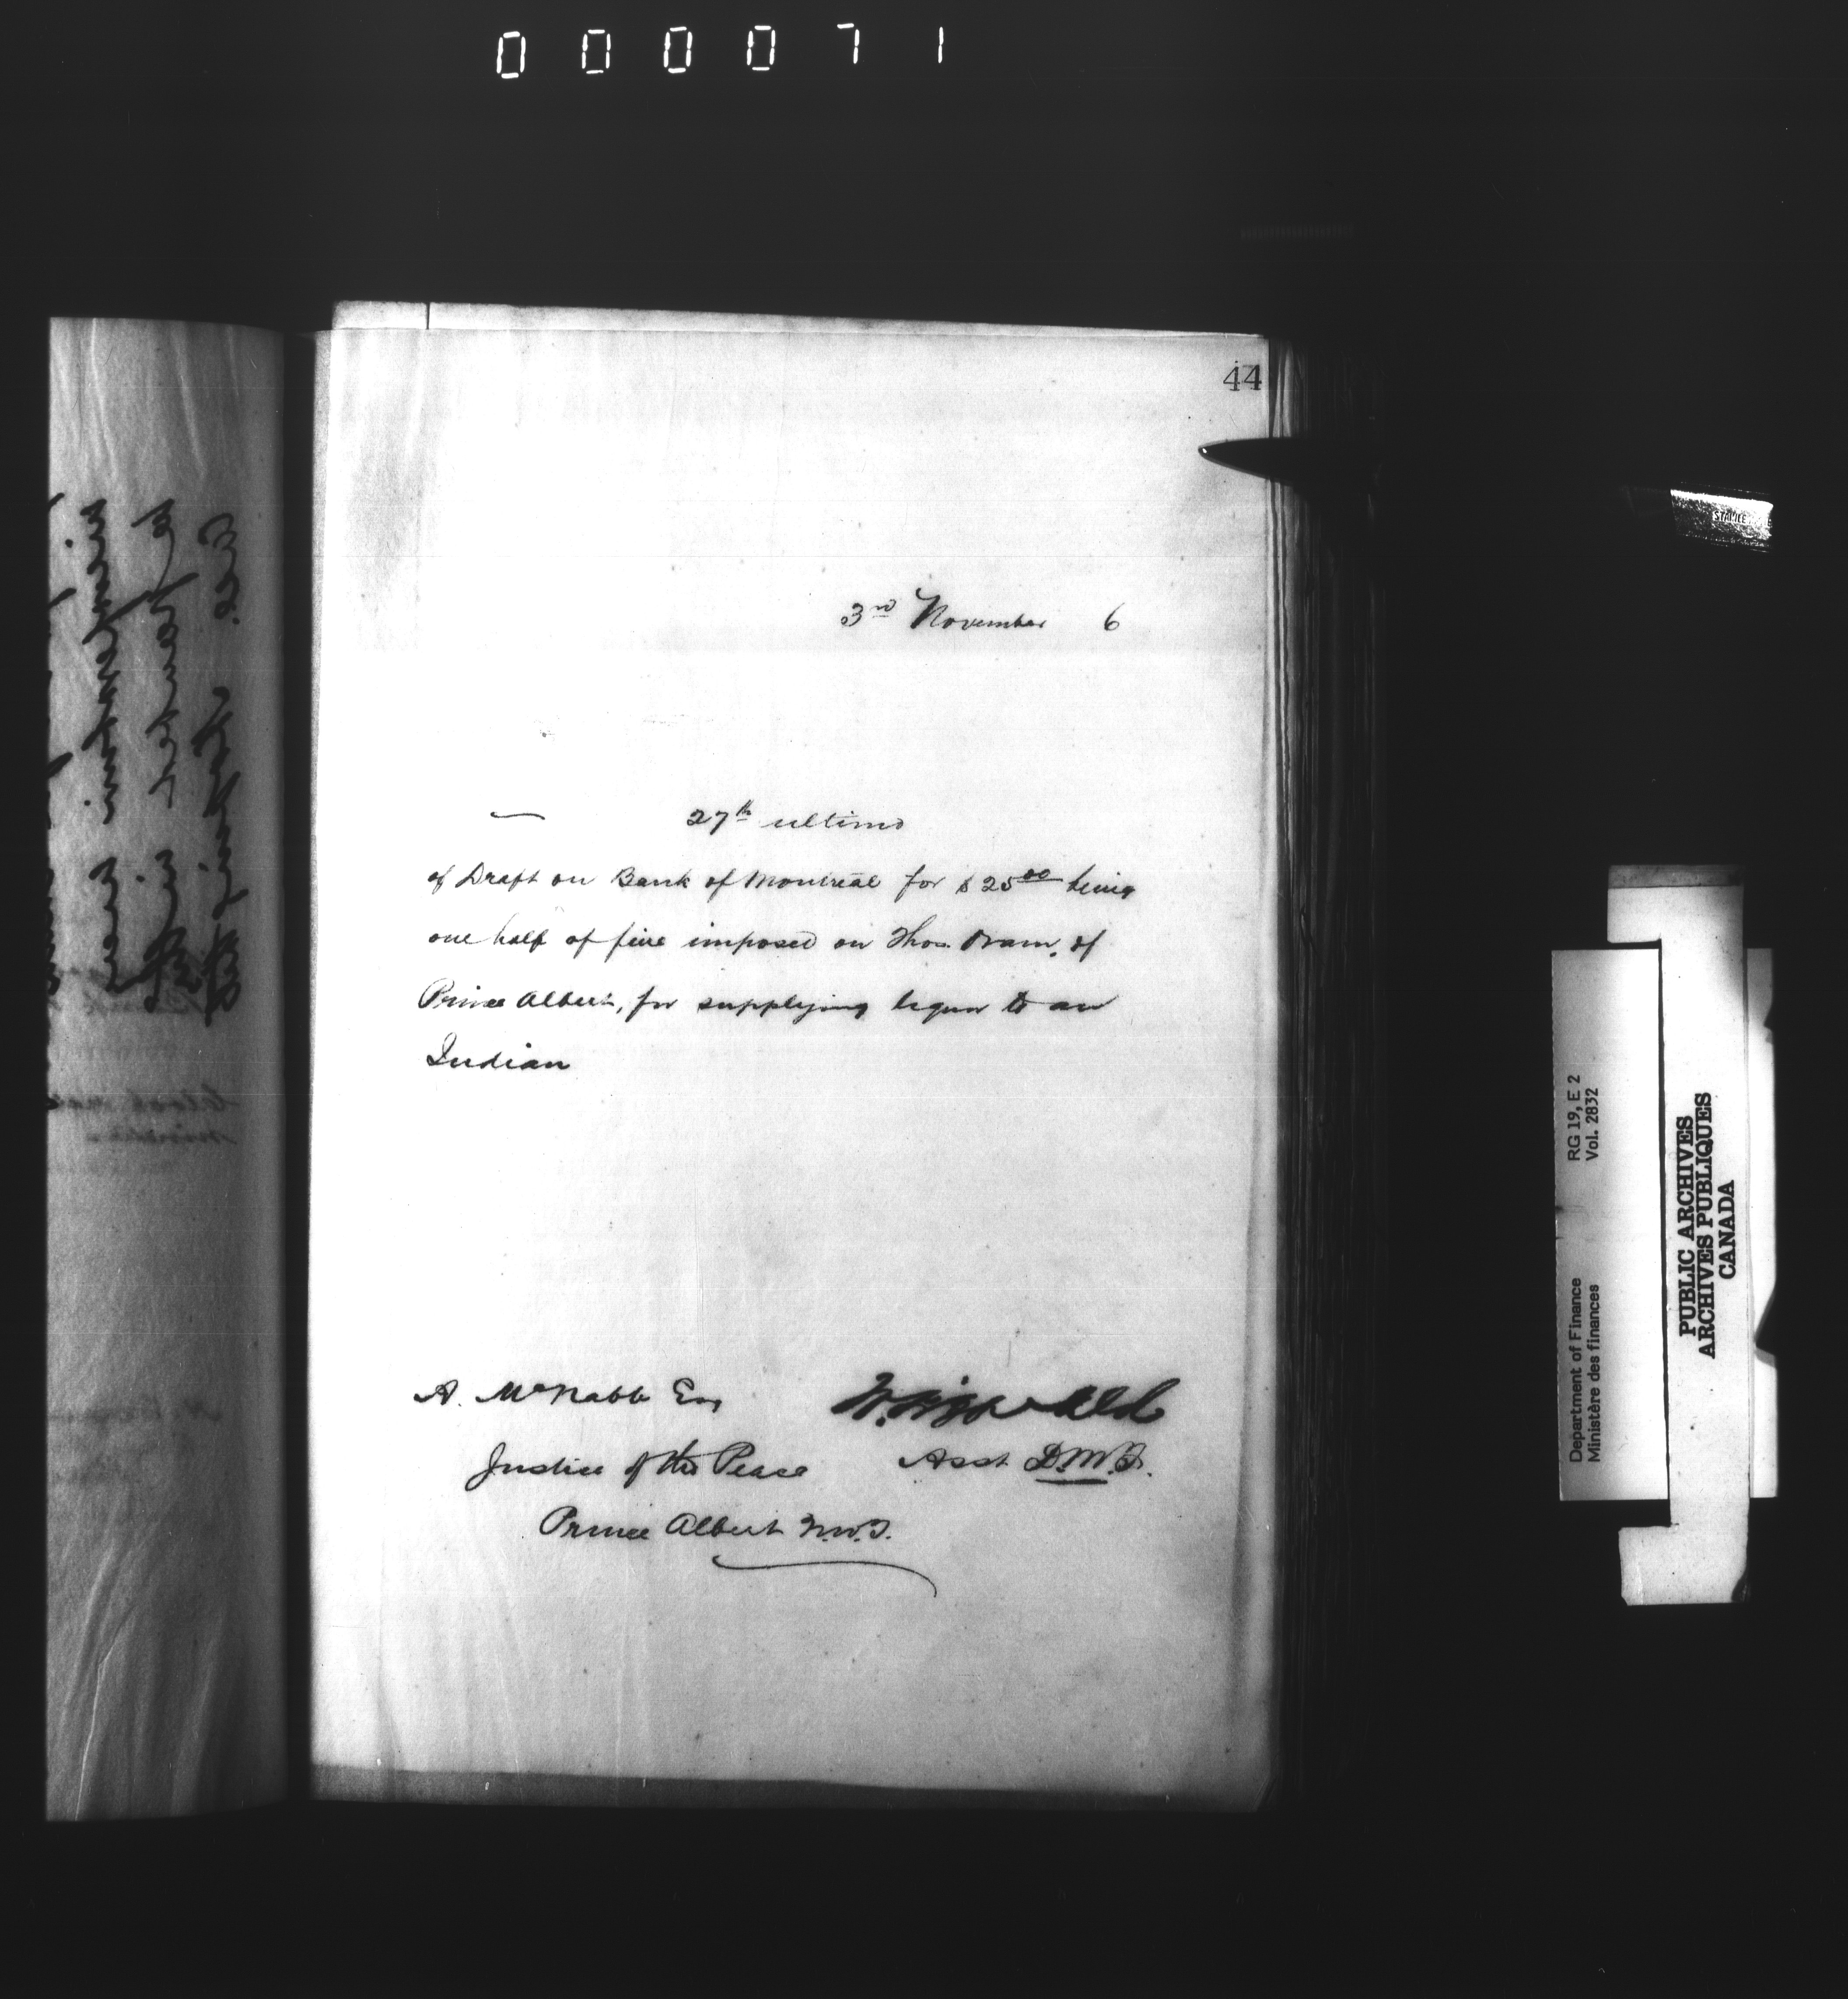 000071
44
3rd November 6
27th ultimo
of Draft on Bank of Montreal for $25.00 being
one half of fine imposed on Thos. Oram, of
Prince Albert, for supplying liquor to an
Indian
A. McNabb Esq
Justice of the Peace
Asst D.M.F.
Prince Albert N.W.T.
STAINLESS
RG 19, E 2
Vol. 2832
Department of Finance
Ministère des finances
PUBLIC ARCHIVES
ARCHIVES PUBLIQUES
CANADA